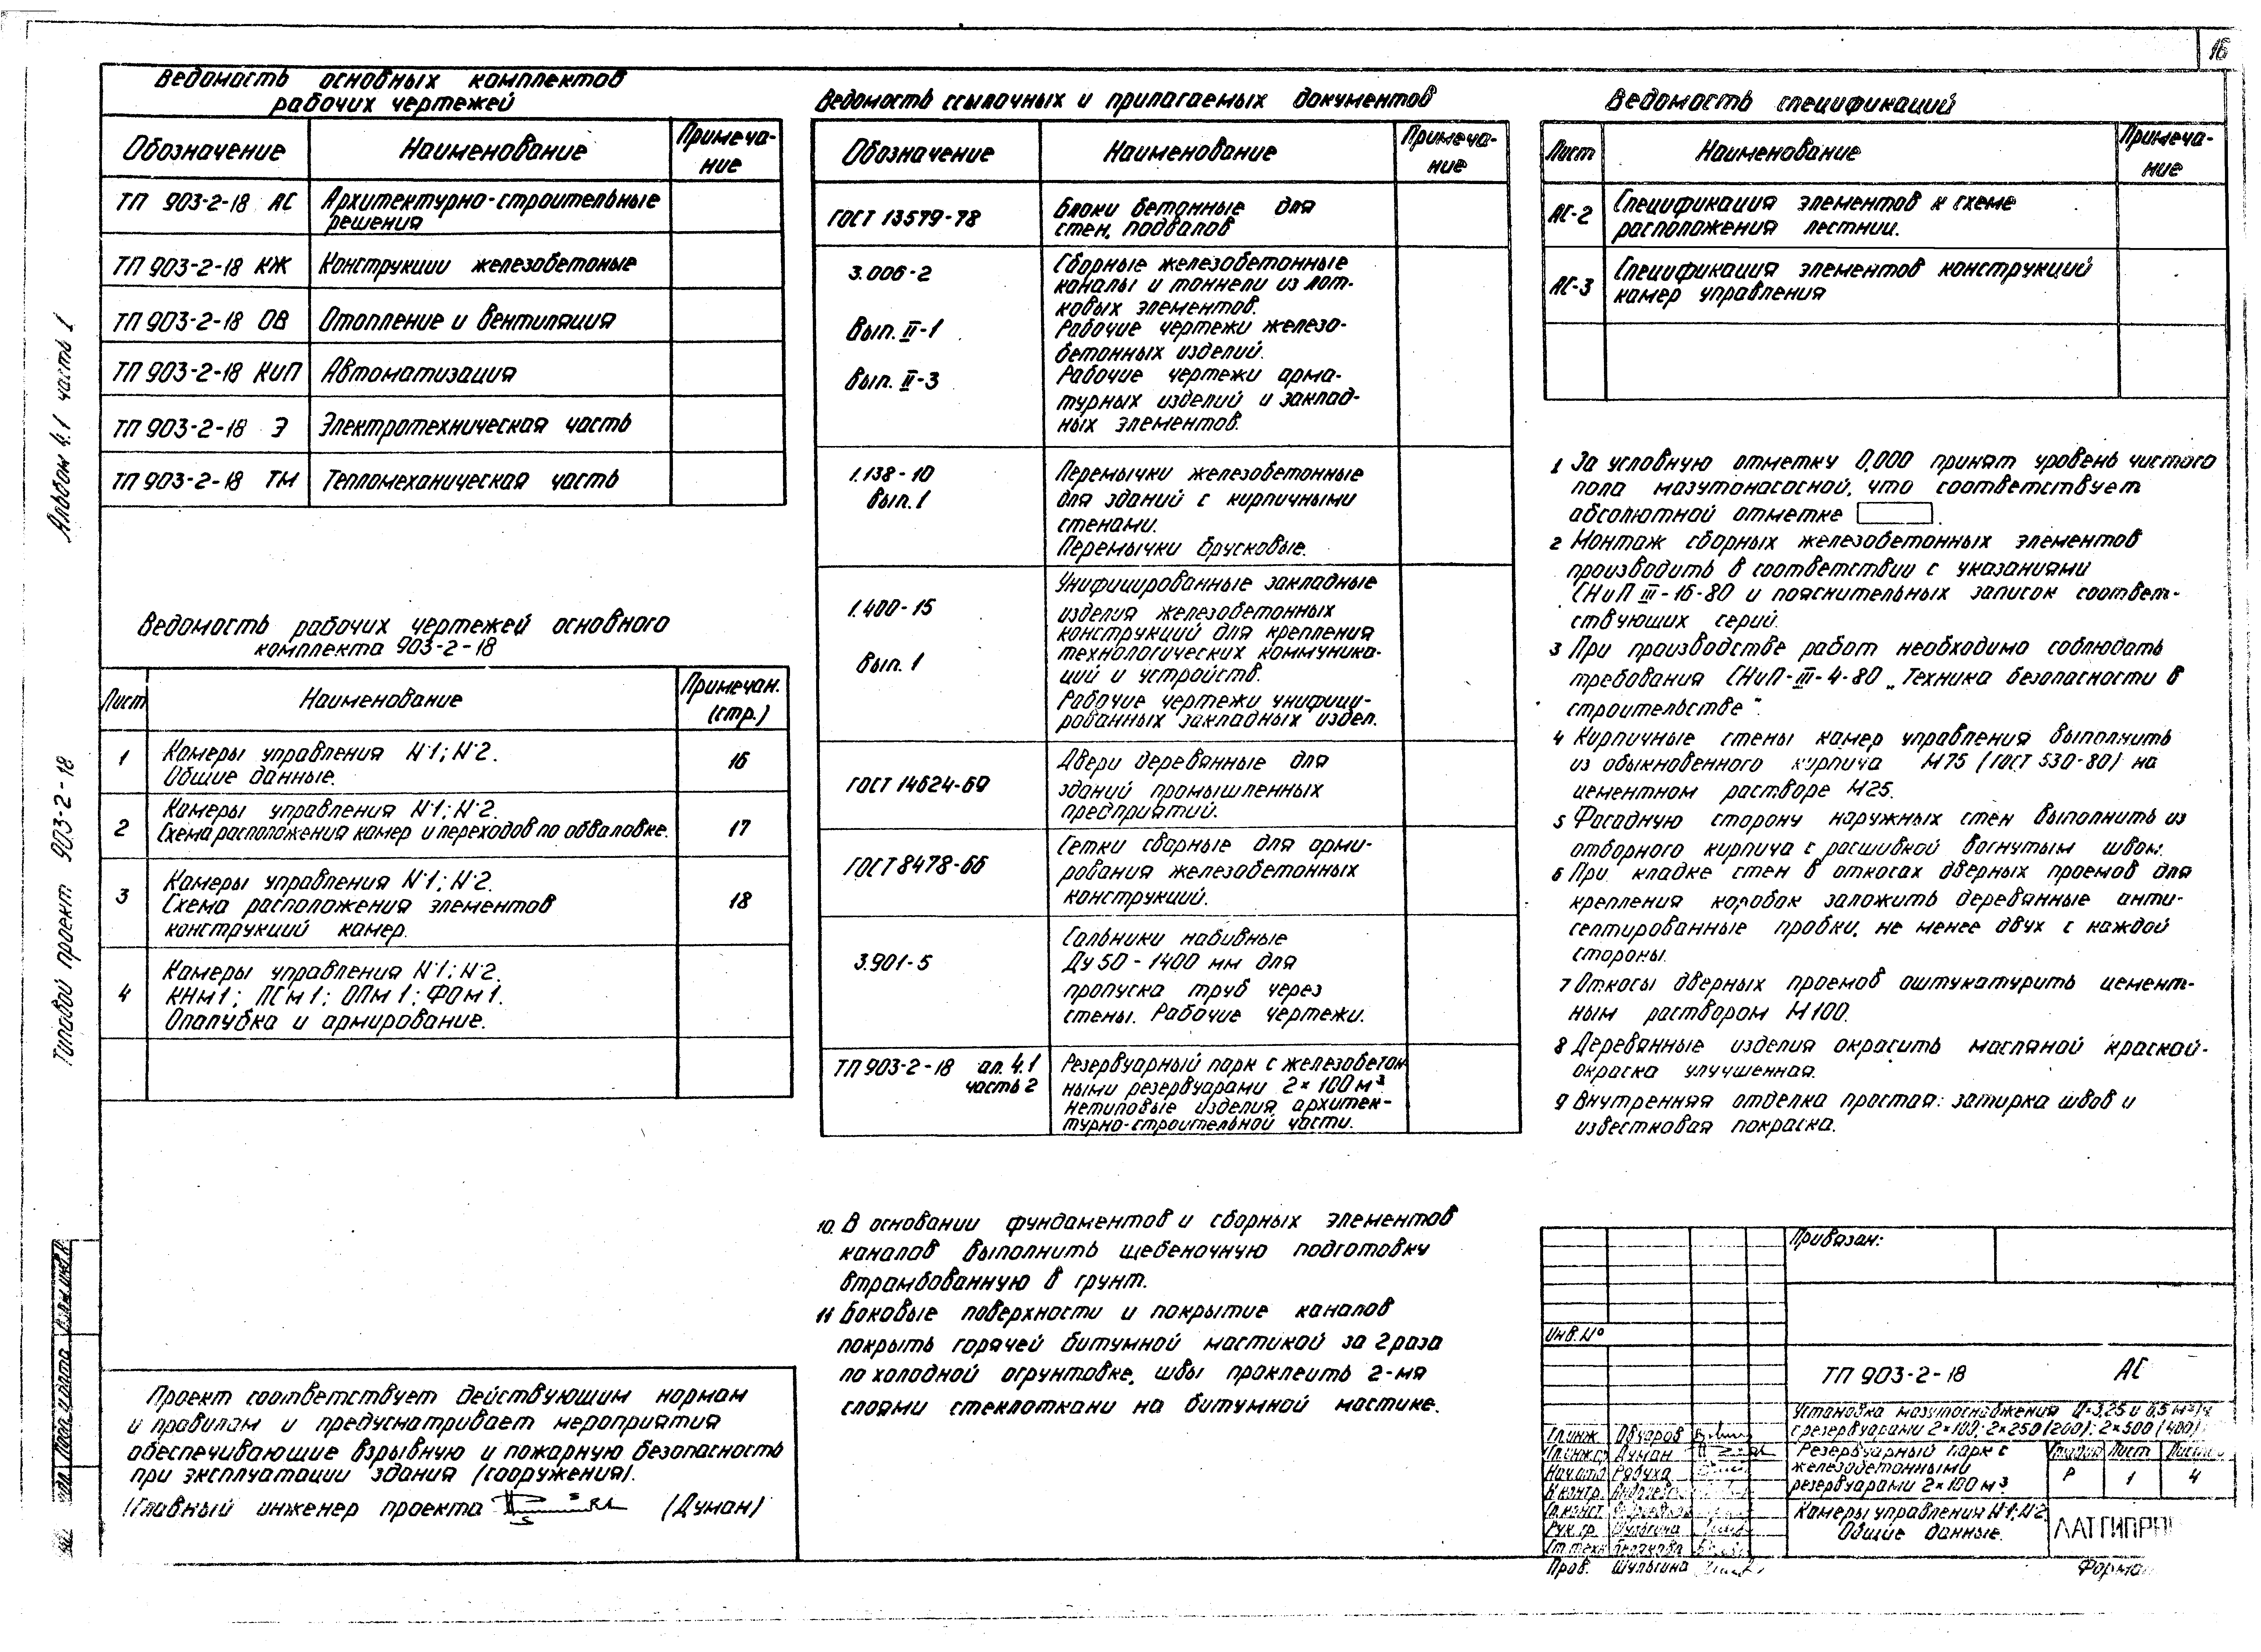 16
Альбом 4.1 часть 1
Типовой проект 903-2-18
Ведомость основных комплектов
рабочих чертежей
Обозначение Наименование Примеча-
ние
ТП 903-2-18 АС Архитектурно-строительные
решения
ТП 903-2-18 КЖ Конструкции железобетоные
ТП 903-2-18 ОВ Отопление и вентиляция
ТП 903-2-18 КиП Автоматизация
ТП 903-2-18 Э Электротехническая часть
ТП 903-2-18 ТМ Тепломеханическая часть
Ведомость рабочих чертежей основного
комплекта 903-2-18
Лист Наименование Примечан.
(стр.)
1 Камеры управления N1; N2. 16
Общие данные.
2 Камеры управления N1; N2. 17
Схема расположения камер и переходов по обваловке.
3 Камеры управления N1; N2. 18
Схема расположения элементов
конструкций камер.
4 Камеры управления N1; N2.
КНм1; ПСм1; ОПм1; ФОм1.
Опалубка и армирование.
Проект соответствует действующим нормам
и правилам и предусматривает мероприятия
обеспечивающие взрывную и пожарную безопасность
при эксплуатации здания (сооружения).
Главный инженер проекта (Думан)
Ведомость ссылочных и прилагаемых документов
Обозначение Наименование Примеча-
ние
ГОСТ 13579-78 Блоки бетонные для
стен, подвалов
3.006-2 Сборные железобетонные
каналы и тоннели из лот-
ковых элементов.
Вып. II-1 Рабочие чертежи железо-
бетонных изделий.
Вып. II-3 Рабочие чертежи арма-
турных изделий и заклад-
ных элементов.
1.138-10 Перемычки железобетонные
вып. 1 для зданий с кирпичными
стенами.
Перемычки брусковые.
Унифицированные закладные
1.400-15 изделия железобетонных
конструкций для крепления
Вып. 1 технологических коммуника-
ций и устройств.
Рабочие чертежи унифици-
рованных закладных издел.
ГОСТ 14624-69 Двери деревянные для
зданий промышленных
предприятий.
ГОСТ 8478-66 Сетки сварные для арми-
рования железобетонных
конструкций.
Сальники набивные
3.901-5 Ду 50-1400 мм для
пропуска труб через
стены. Рабочие чертежи.
ТП 903-2-18 ал. 4.1 Резервуарный парк с железобетон
часть 2 ными резервуарами 2×100 м³
Нетиповые изделия архитек-
турно-строительной части.
10. В основании фундаментов и сборных элементов
каналов выполнить щебеночную подготовку
втрамбованную в грунт.
11 Боковые поверхности и покрытие каналов
покрыть горячей битумной мастикой за 2 раза
по холодной огрунтовке, швы проклеить 2-мя
слоями стеклоткани на битумной мастике.
Ведомость спецификаций
Лист Наименование Примеча-
ние
АС-2 Спецификация элементов к схеме
расположения лестниц.
АС-3 Спецификация элементов конструкций
камер управления
1 За условную отметку 0,000 принят уровень чистого
пола мазутонасосной, что соответствует
абсолютной отметке .
2 Монтаж сборных железобетонных элементов
производить в соответствии с указаниями
СНиП III-16-80 и пояснительных записок соответ-
ствующих серий.
3 При производстве работ необходимо соблюдать
требования СНиП-III-4-80 „Техника безопасности в
строительстве".
4 Кирпичные стены камер управления выполнить
из обыкновенного кирпича М75 (ГОСТ 530-80) на
цементном растворе М25.
5 Фасадную сторону наружных стен выполнить из
отборного кирпича с расшивкой вогнутым швом.
6 При кладке стен в откосах дверных проемов для
крепления коробок заложить деревянные анти-
септированные пробки, не менее двух с каждой
стороны.
7 Откосы дверных проемов оштукатурить цемент-
ным раствором М100.
8 Деревянные изделия окрасить масляной краской-
окраска улучшенная.
9 Внутренняя отделка простая: затирка швов и
известковая покраска.
Привязан:
Инв. №
ТП 903-2-18 АС
Установка мазутоснабжения Q=3,25 и 6,5 м³/ч
с резервуарами 2×100; 2×250 (200); 2×500 (400)
Гл.инж. Овчаров
Гл.инж.пр Думан
Нач.отд Рябуха
Н.контр.
Гл.конст
Рук.гр. Шульгина
Ст.техн
Пров. Шульгина
Резервуарный парк с
железобетонными
резервуарами 2×100 м³
Стадия Лист Листов
Р 1 4
Камеры управления N1; N2.
Общие данные.
ЛАТГИПРО